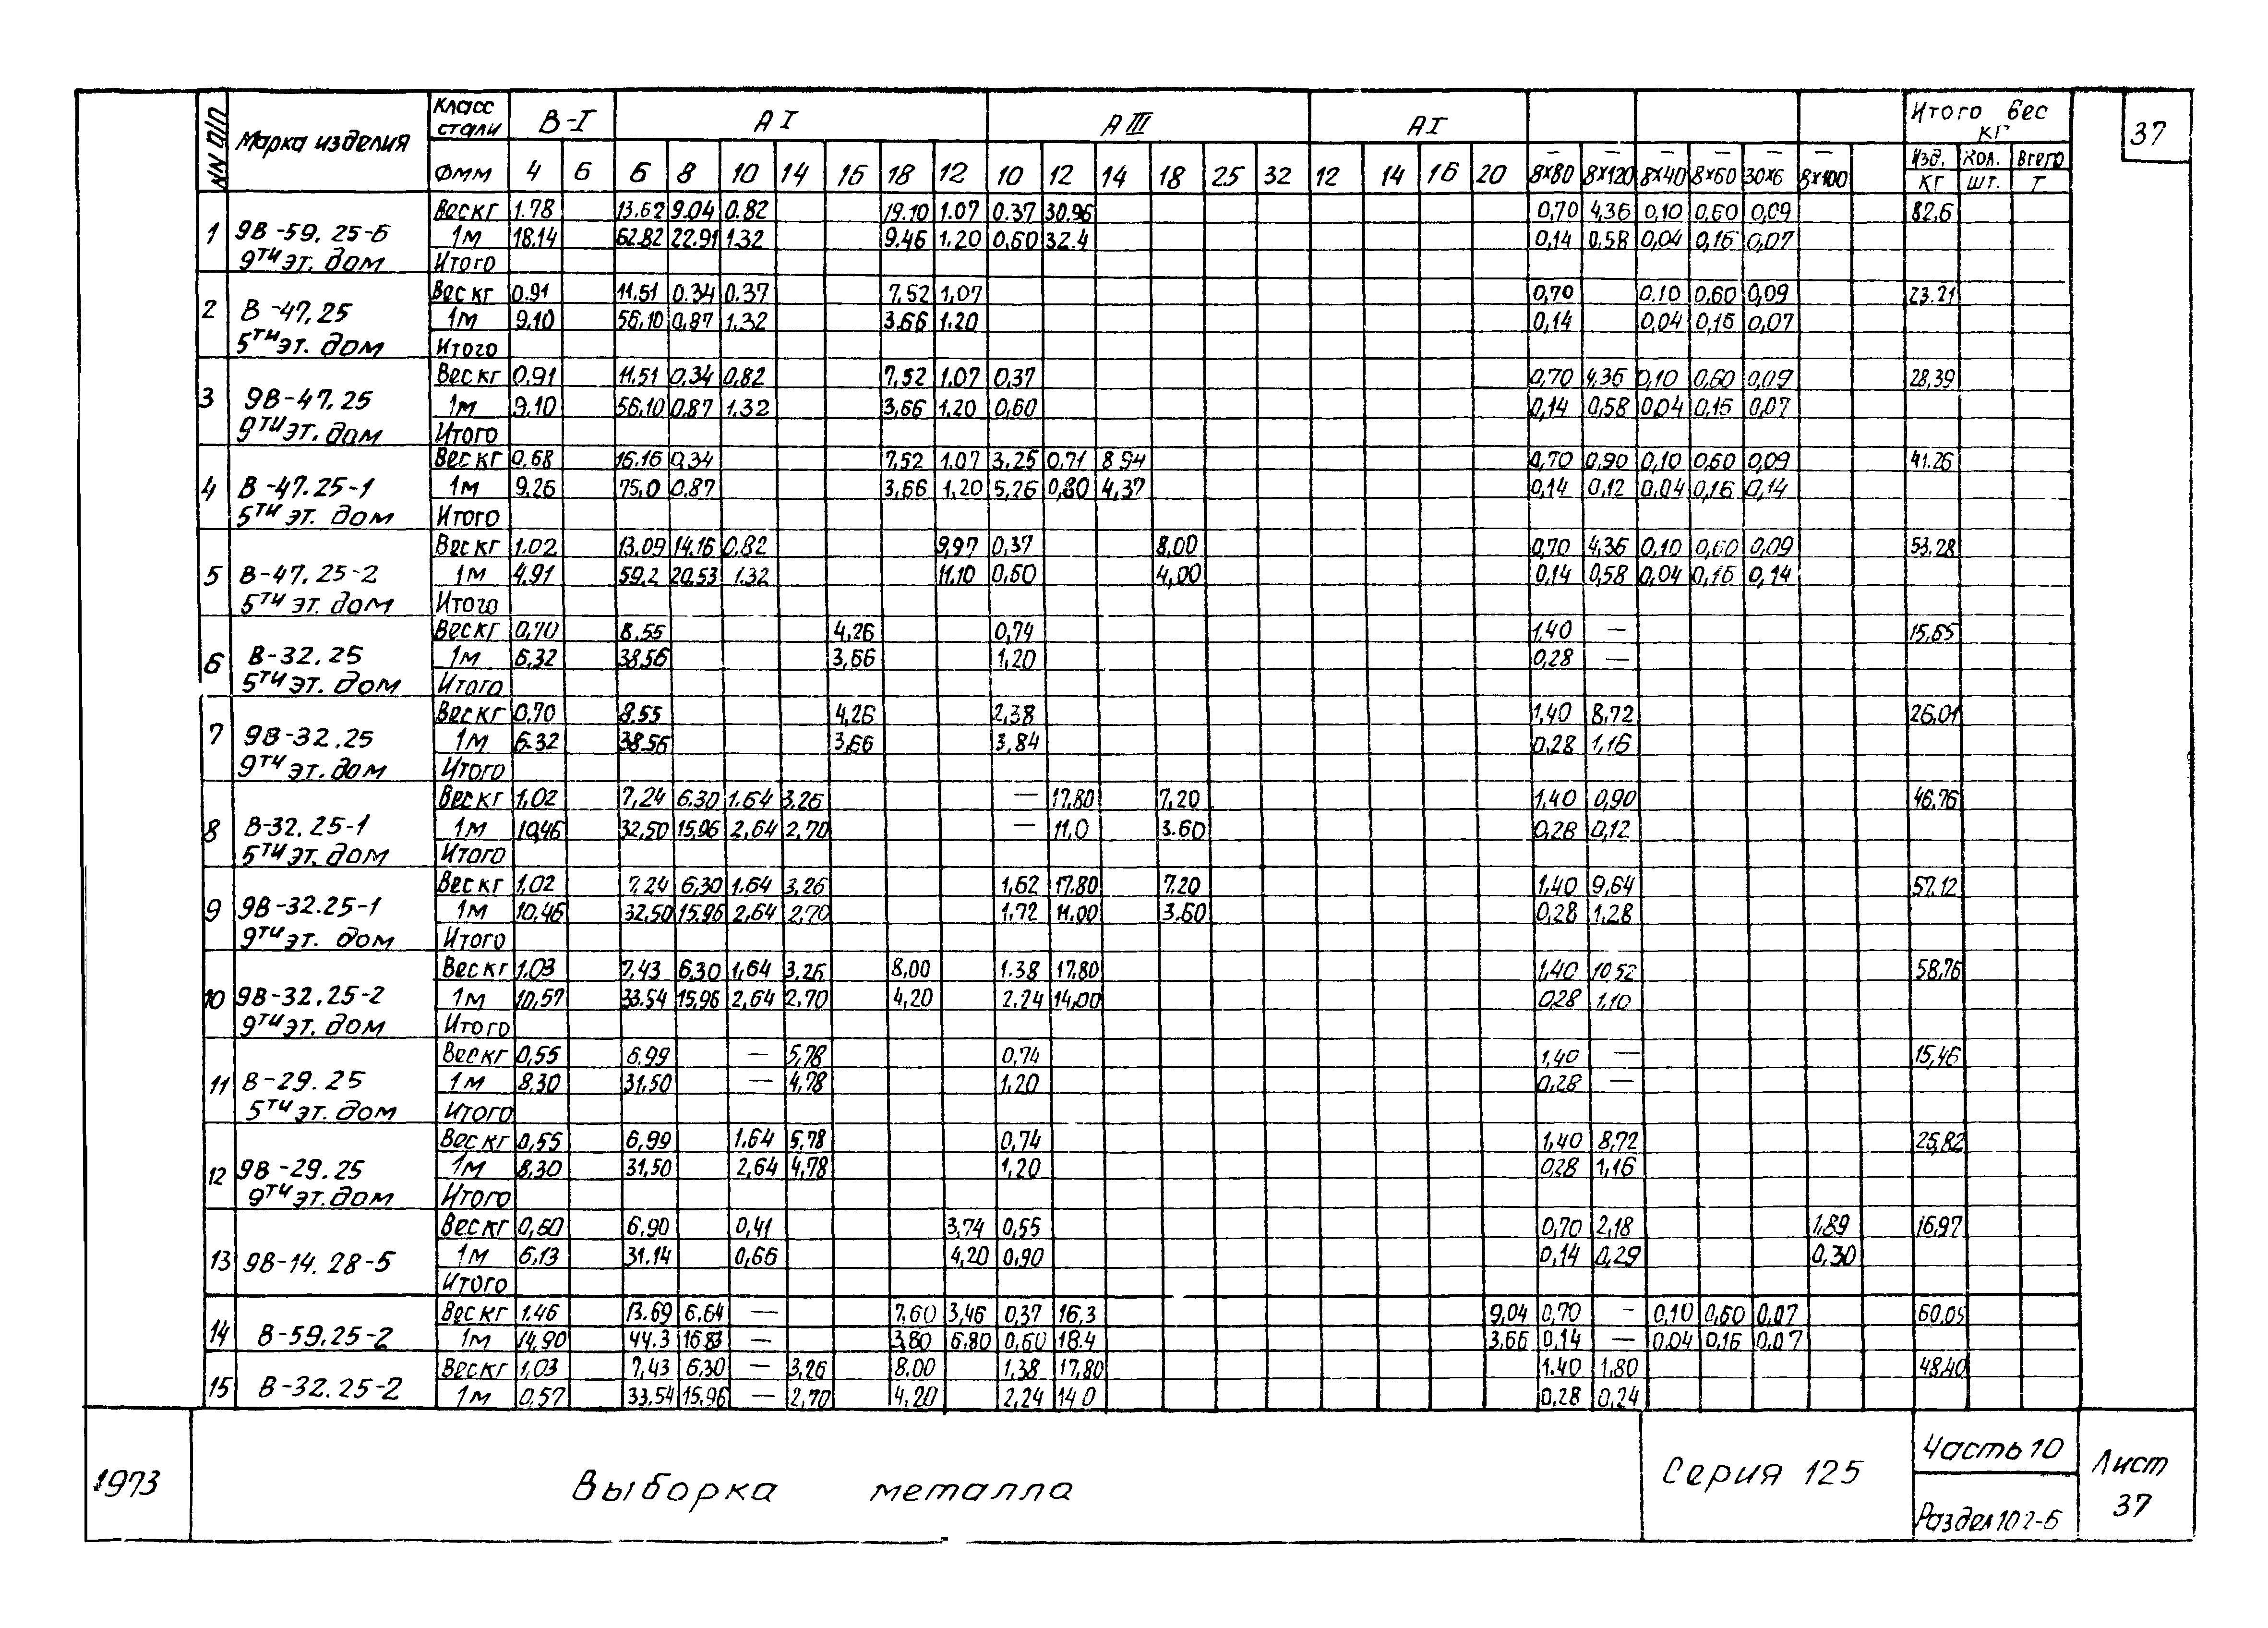 37
NN п/п Марка изделия Класс стали В-I А I А III А I Итого вес кг
Фмм 4 6 6 8 10 14 16 18 12 10 12 14 18 25 32 12 14 16 20 8×80 8×120 8×40 8×60 30×6 8×100 Изд. кг Кол. шт. Всего т
1 9В-59,25-6 9ти эт. дом
Вес кг 1.78 13.62 9.04 0.82 19.10 1.07 0.37 30.96 0,70 4,36 0,10 0,60 0,09 82,6
1м 18,14 62.82 22.91 1.32 9.46 1.20 0,60 32.4 0,14 0,58 0,04 0,16 0,07
Итого
2 В-47,25 5ти эт. дом
Вес кг 0.91 11.51 0.34 0.37 7,52 1,07 0,70 0.10 0,60 0,09 23.21
1м 9.10 56,10 0,87 1,32 3.66 1.20 0,14 0,04 0,16 0,07
Итого
3 9В-47,25 9ти эт. дом
Вес кг 0,91 11.51 0,34 0,82 7,52 1.07 0,37 0,70 4,36 0,10 0,60 0,09 28,39
1м 9.10 56,10 0,87 1,32 3,66 1,20 0,60 0,14 0,58 0,04 0,16 0,07
Итого
4 В-47.25-1 5ти эт. дом
Вес кг 0.68 16.16 0,34 7,52 1.07 3.25 0,71 8.94 0,70 0,90 0,10 0,60 0,09 41.26
1м 9,26 75,0 0,87 3,66 1,20 5,26 0,80 4,37 0,14 0,12 0,04 0,16 0,14
Итого
5 В-47,25-2 5ти эт. дом
Вес кг 1.02 13.09 14.16 0,82 9,97 0,37 8,00 0,70 4,36 0,10 0,60 0,09 53.28
1м 4,91 59.2 20,53 1.32 11.10 0,60 4,00 0,14 0,58 0,04 0,16 0,14
Итого
6 В-32,25 5ти эт. дом
Вес кг 0,70 8.55 4,26 0,74 1,40 — 15,65
1м 6.32 38.56 3,66 1,20 0,28 —
Итого
7 9В-32.25 9ти эт. дом
Вес кг 0.70 8.55 4,26 2,38 1,40 8,72 26,01
1м 6.32 38.56 3,66 3,84 0,28 1,16
Итого
8 В-32,25-1 5ти эт. дом
Вес кг 1,02 7,24 6.30 1.64 3.26 — 17,80 7,20 1,40 0,90 46,76
1м 10,46 32,50 15,96 2,64 2,70 — 11,0 3.60 0,28 0,12
Итого
9 9В-32.25-1 9ти эт. дом
Вес кг 1,02 7,24 6,30 1,64 3,26 1,62 17,80 7.20 1,40 9,64 57,12
1м 10,46 32,50 15.96 2,64 2,70 1,72 11,00 3.60 0,28 1,28
Итого
10 9В-32,25-2 9ти эт. дом
Вес кг 1.03 7,43 6,30 1,64 3,26 8,00 1.38 17,80 1,40 10,52 58,76
1м 10,57 33.54 15,96 2,64 2,70 4,20 2.24 14,00 0,28 1,10
Итого
11 В-29.25 5ти эт. дом
Вес кг 0,55 6,99 — 5,78 0,74 1,40 — 15,46
1м 8,30 31,50 — 4,78 1,20 0,28 —
Итого
12 9В-29.25 9ти эт. дом
Вес кг 0,55 6,99 1.64 5,78 0,74 1,40 8,72 25,82
1м 8,30 31,50 2,64 4,78 1,20 0,28 1,16
Итого
13 9В-14.28-5
Вес кг 0,60 6,90 0,41 3,74 0,55 0,70 2,18 1,89 16,97
1м 6,13 31.14 0,66 4,20 0,90 0,14 0,29 0,30
Итого
14 В-59,25-2
Вес кг 1.46 13.69 6,64 — 7,60 3,46 0,37 16,3 9,04 0,70 — 0,10 0,60 0,07 60,05
1м 14,90 44.3 16.83 — 3,80 6,80 0,60 18.4 3.66 0,14 — 0,04 0,16 0,07
15 В-32.25-2
Вес кг 1,03 7,43 6,30 — 3,26 8.00 1,38 17,80 1.40 1,80 48,40
1м 0,57 33,54 15,96 — 2,70 4,20 2,24 14 0 0,28 0,24
1973
Выборка металла
Серия 125
Часть 10
Раздел 10 2-6
Лист
37